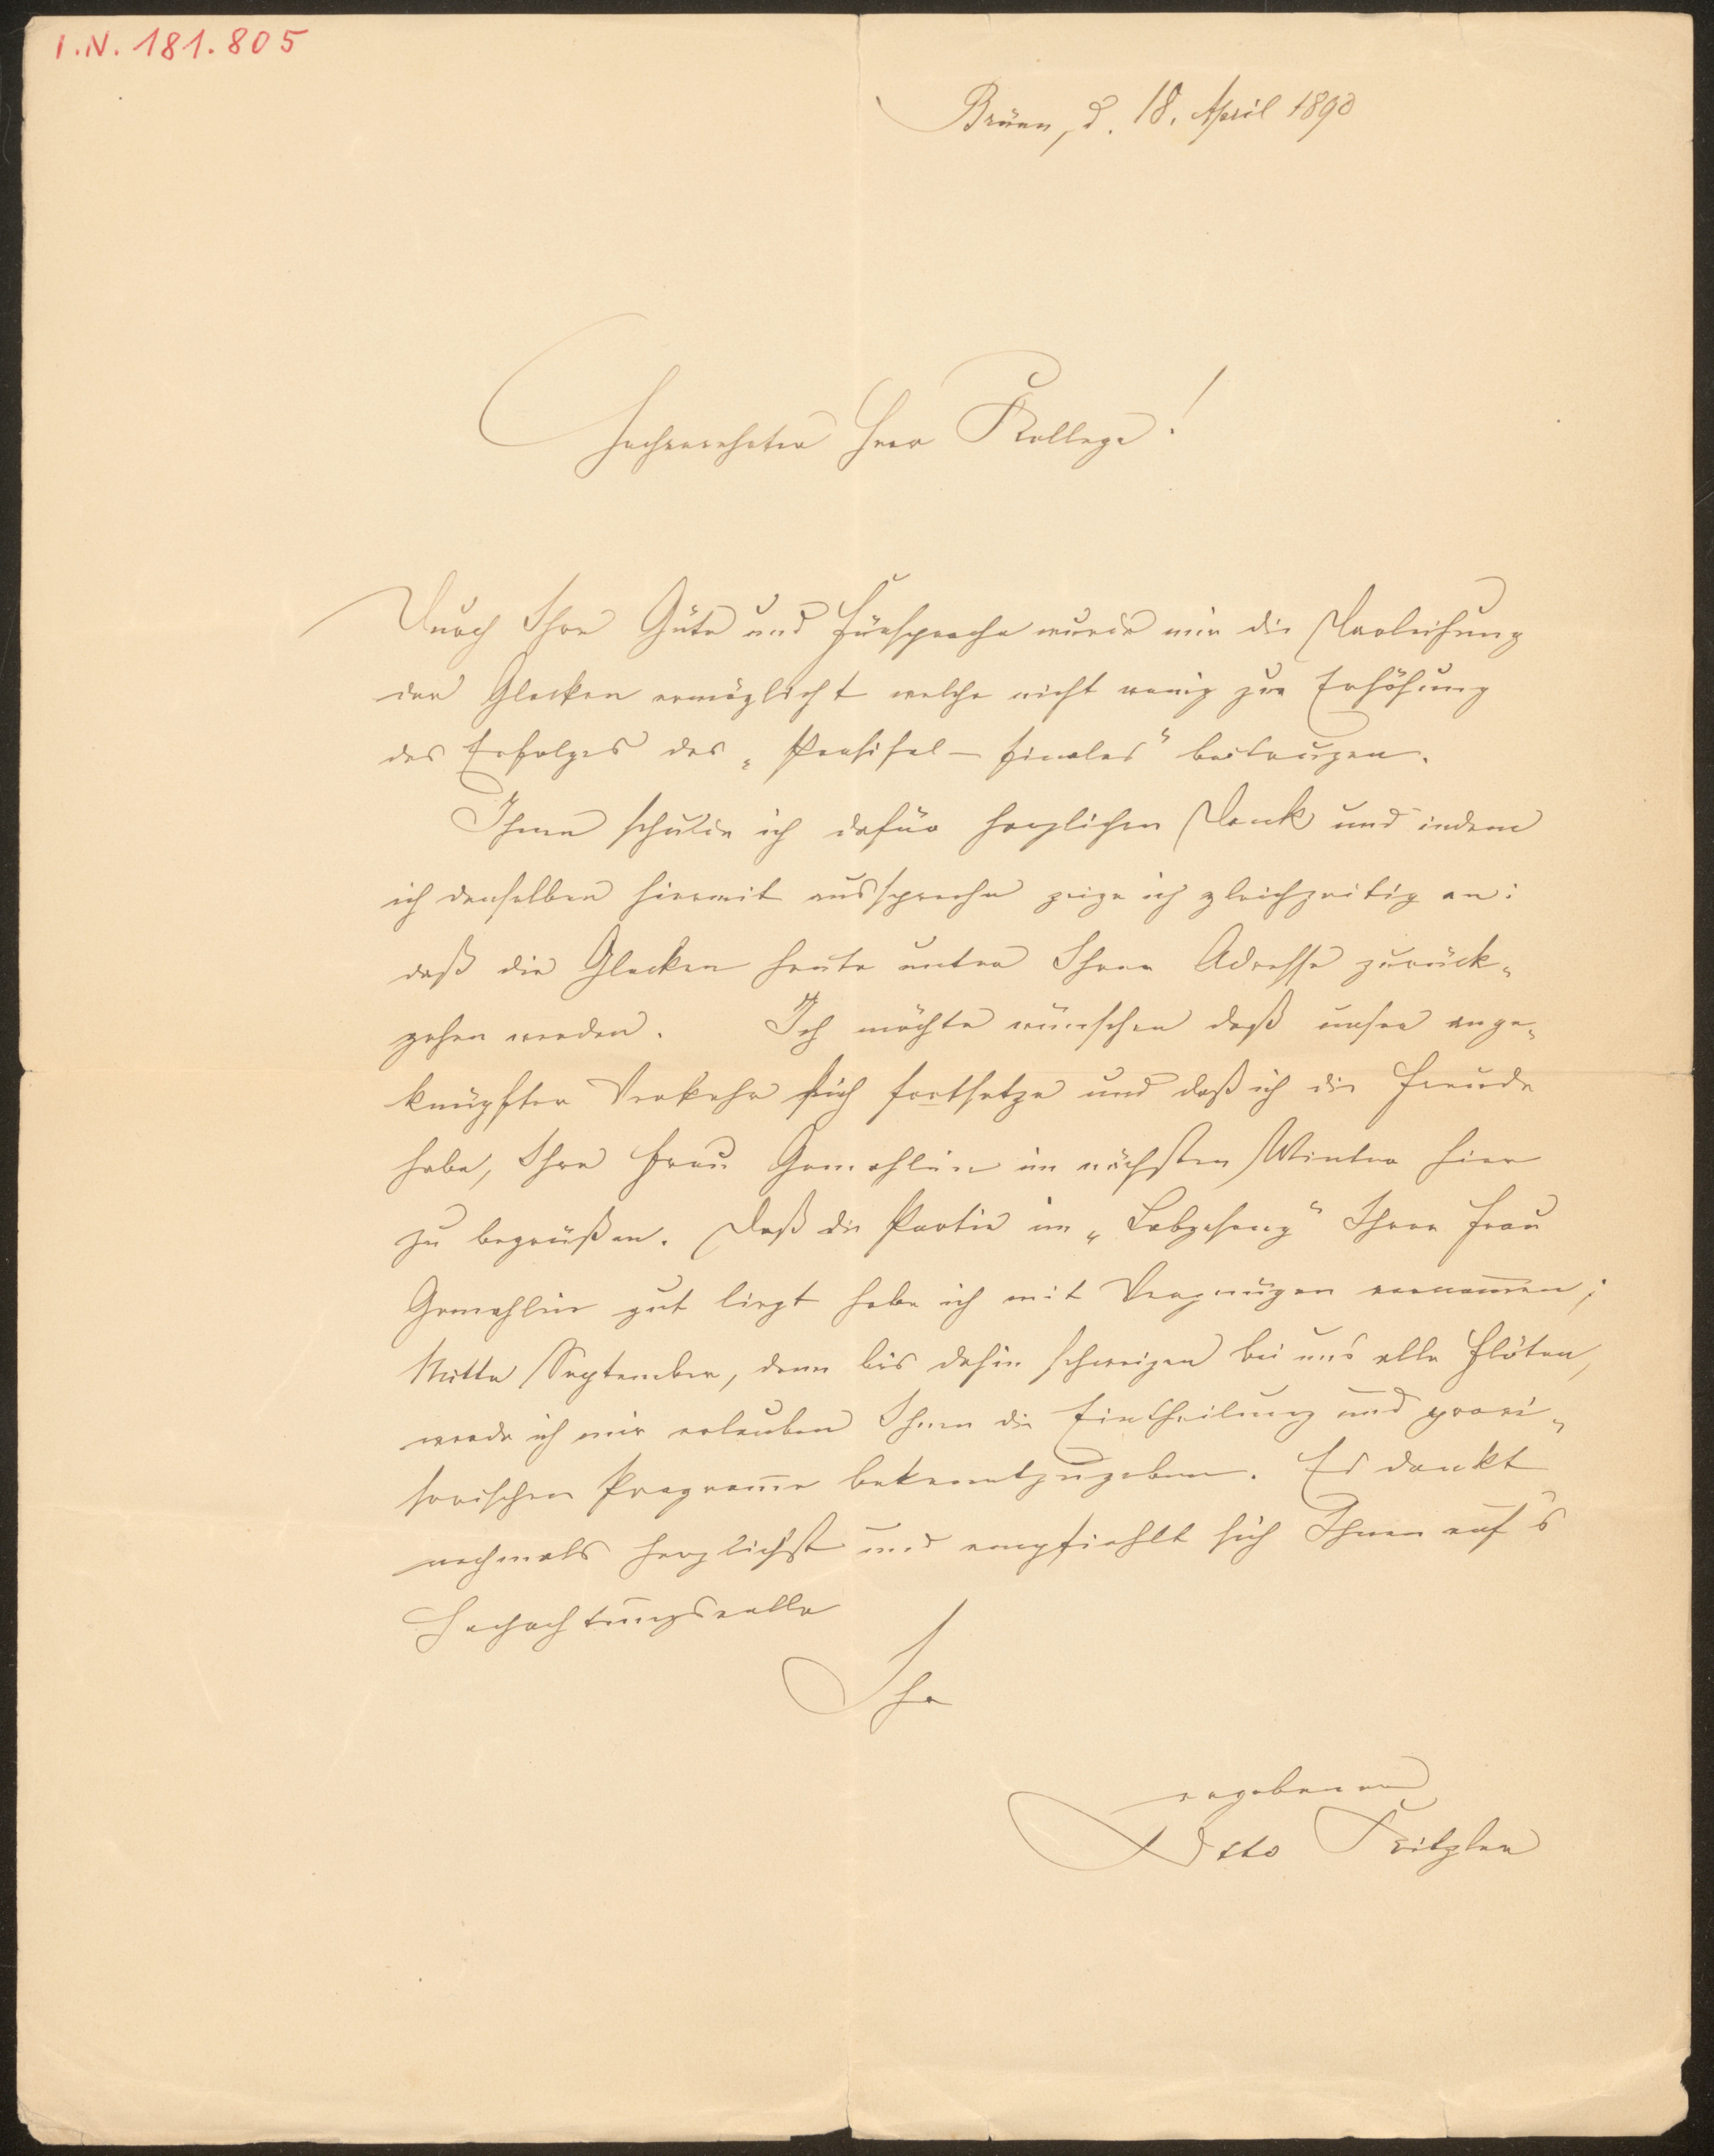 I.N. 181.805
Brünn, d. 18. April 1890
Hochverehrter Herr Kollege!
Durch Ihre Güte und Fürsprache wurde mir die Darleihung
der Glocken ermöglicht welche nicht wenig zur Erhöhung
des Erfolges des „Parsifal-Finales“ beitrugen.
Ihnen schulde ich dafür herzlichen Dank und indem
ich denselben hiermit ausspreche zeige ich gleichzeitig an:
daß die Glocken heute unter Ihrer Adresse zurück-
gehen werden. Ich möchte wünschen daß unser ange-
knüpfter Verkehr sich fortsetze und daß ich die Freude
habe, Ihre Frau Gemahlin im nächsten Winter hier
zu begrüßen. Daß die Partie im „Lobgesang“ Ihrer Frau
Gemahlin gut liegt habe ich mit Vergnügen vernom̅en;
Mitte September, denn bis dahin schweigen bei uns alle Flöten,
werde ich mir erlauben Ihnen die Eintheilung und provi-
sorischen Program̅e bekanntzugeben. Es dankt
nochmals herzlichst und empfiehlt sich Ihnen auf's
Hochachtungsvolle
Ihr
ergebener
Otto Kitzler